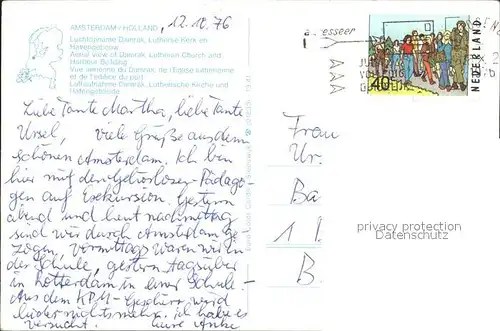 12.10.76
AMSTERDAM - HOLLAND
Luchtopname Damrak, Lutherse Kerk en
Havengebouw
Aerial view of Damrak, Lutheran Church and
Harbour Building
Vue aérienne du Damrak, de l'Eglise luthérienne
et de l'édifice du port
Luftaufnahme Damrak, Lutherische Kirche und
Hafengebäude
Liebe Tante Martha, liebe Tante
Ursel, viele Grüße aus dem
schönen Amsterdam. Ich bin
hier mit den Gehörlosen-Pädago-
gen auf Exkursion. Gestern
abend und heut nachmittag
sind wir durch Amsterdam ge-
zogen, vormittags waren wir in
der Schule, gestern tagsüber
in Rotterdam in einer Schule -
Aus dem KPM-Geschirr wird
leider nichts mehr. ich habe es
versucht. Eure Anke
NEDERLAND
40
AAA
Frau
Ur
Ba
1
B
privacy protection
Datenschutz